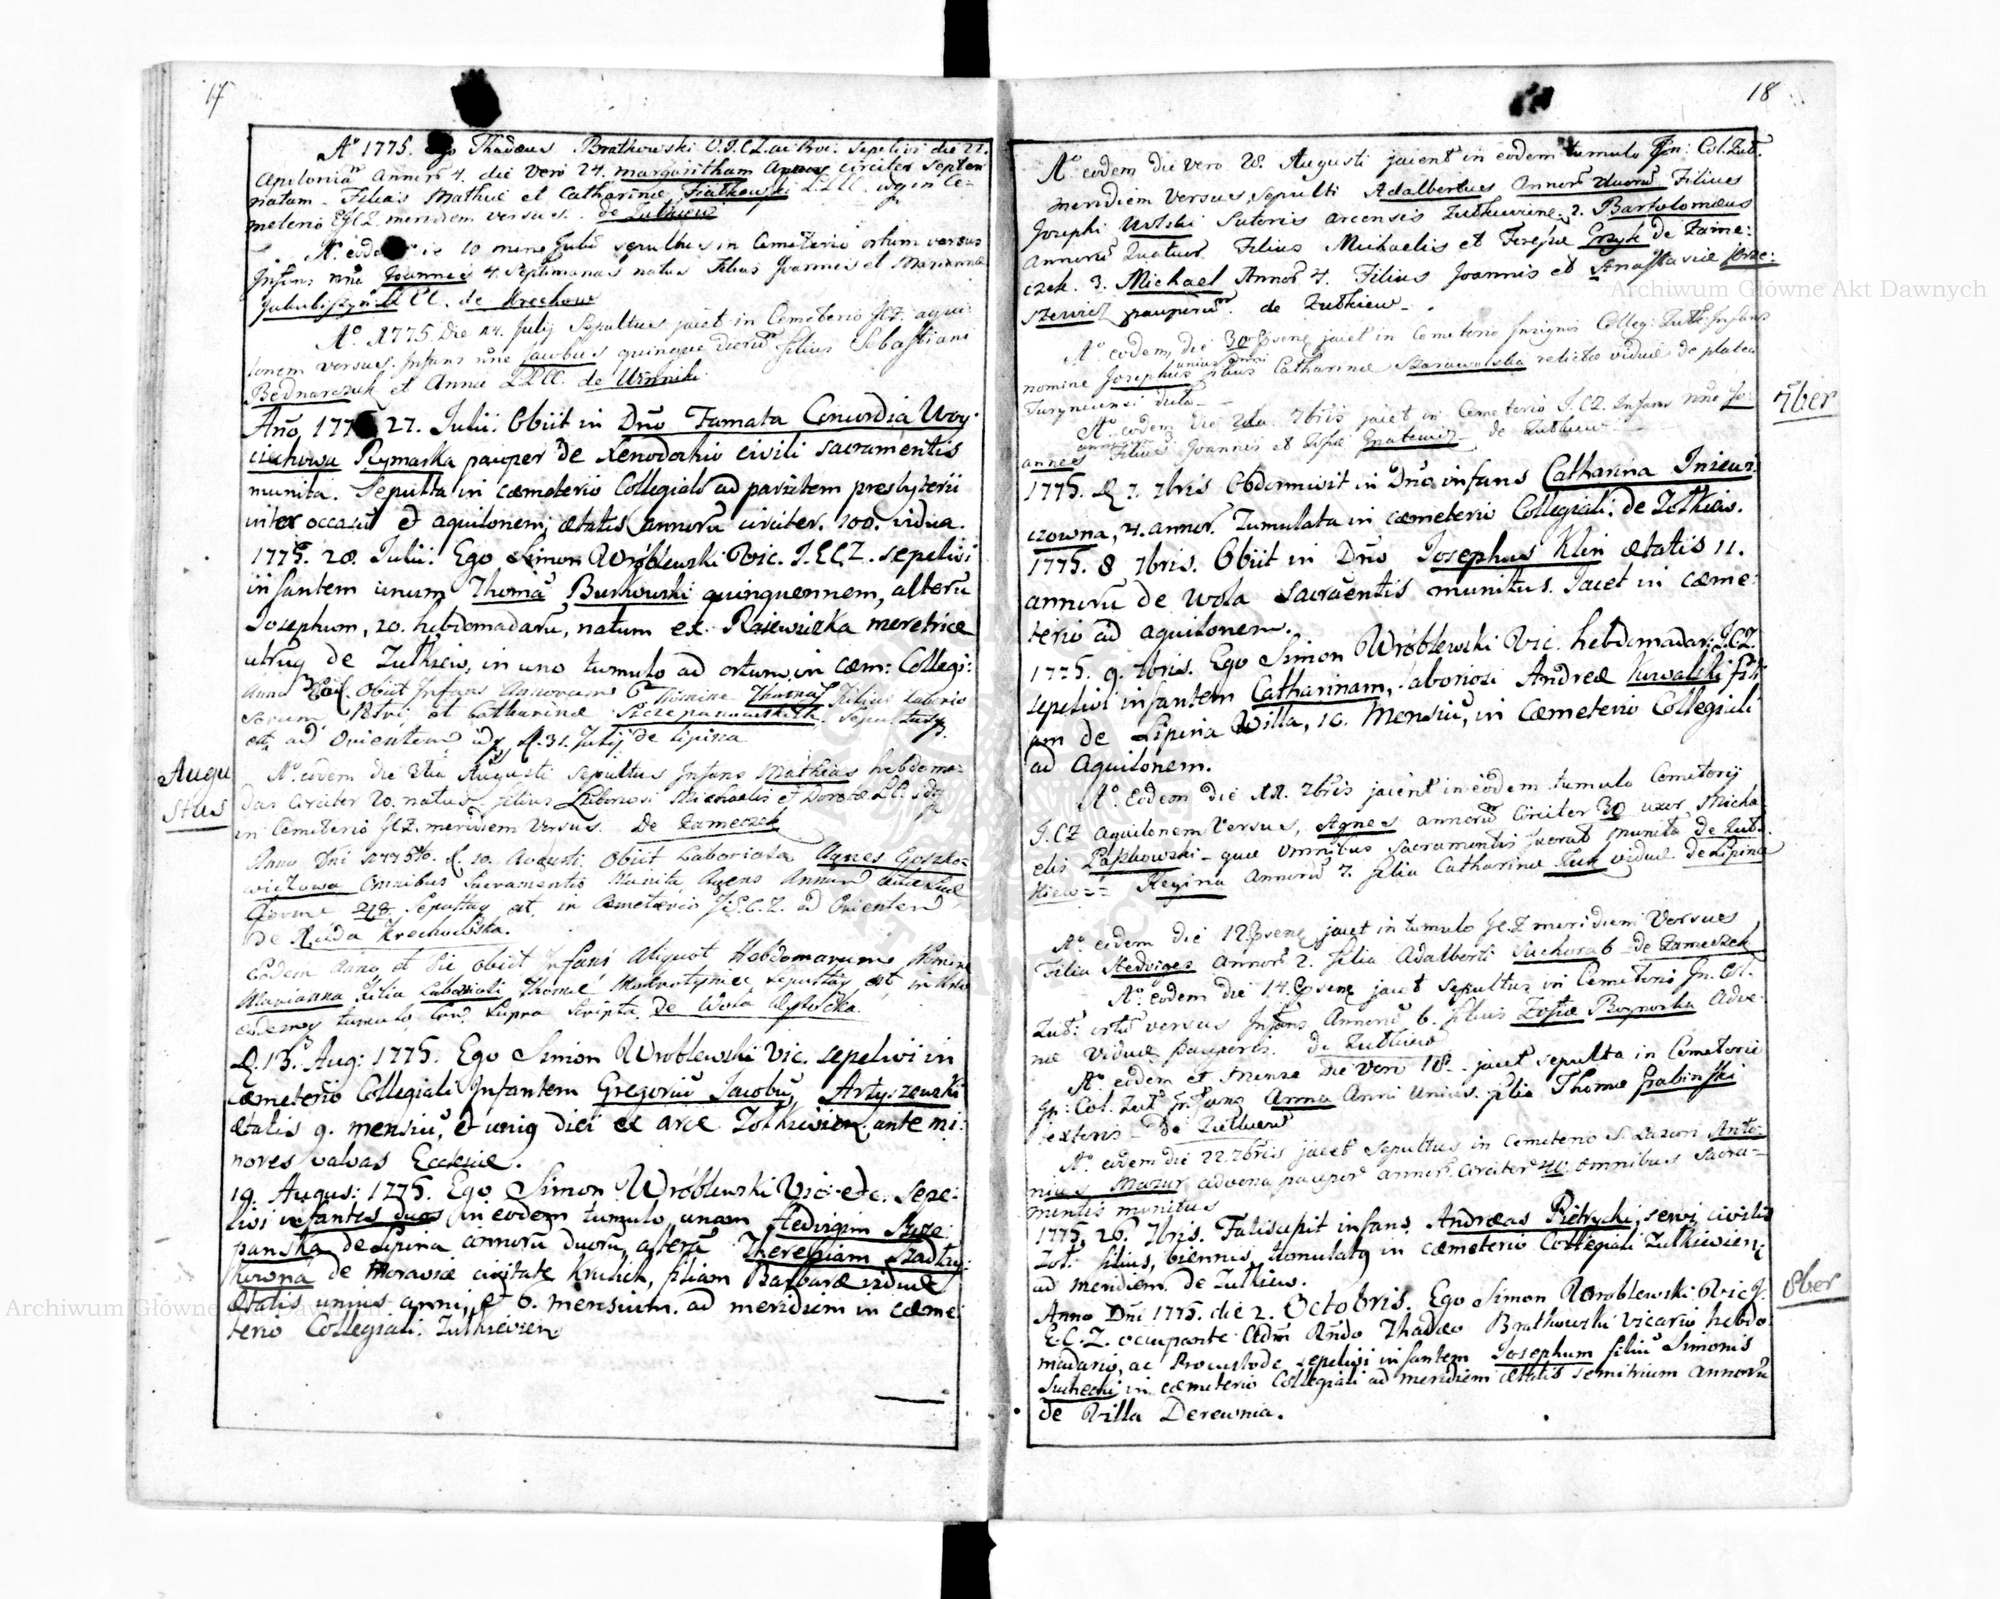 17
Aº 1775. Ego Thadeus Bratkowski V.I.C.Z. ac Proc. Sepelivi die 22.
Apoloniam Annorũ 4. die vero 24. Margaritham circiter septen
natam. Filias Mathiæ et Catharinæ Fiałkowski L.L.C.C. in Ce-
meterio meridiem versus. de Zułkiew
Aº eodem die 10 mens Julii sepultus in Cemeterio ortum versus
Infans nñe Joannes 4. Septimanas natus Filius Joannis et Mariannæ
L.L.C.C. de Krechow
Aº 1775. Die 14. Julij Sepultus jacet in Cemeterio aqui-
lonem versus. Infans nñe Jacobus quinque dierũ filius Sebastiani
Bednarczuk et Annæ L.L.C.C. de Winniki
Año 1775 27. Julii. Obiit in Dño Famata Concordia Woy-
ciechowa Rymarka pauper de Xenodochio civili sacramentis
munita. Sepulta in cæmeterio Collegiali ad parietem presbyterii
inter occasũ et aquilonem; ætatis annorũ circiter. 100. vidua.
1775. 28. Julii. Ego Simon Wróblewski Vic. I.E.C.Z. sepelivi
infantem unum Thomã Burkowski quinquennem, alterũ
Josephum, 20. hebdomadarũ, natum ex Rajewiczka meretrice
utrũq de Zułkiew, in uno tumulo ad ortum, in cæm: Collegi:
Anno Eod. Obiit Infans Annorum 6 Nomine Thomas Filius Laborio
sorum Petri et Catharinæ Szczepanowskich Sepultus
est, ad Orientem D. 31. Julij de Lipina
Augu
stus
Aº eodem die 2da Augusti sepultus Infans Mathias hebdoma-
das circiter 20. natus. filius Laboriosi Michaelis et Dorotæ
in Cemeterio I.C.Z. meridiem versus. De Zameczek
Anno Dñi 1775to. D. 10. Augusti. Obiit Laboriosa Agnes Goszko-
wiczowa Omnibus Sacramentis Munita, Agens Annum ætatis suæ
Sepulta est in Cæmeterio I.E.C.Z. ad Orientem
De Ruda Krechowska.
Eodem Anno et Die Obiit Infans Aliquot Hebdomarum Nomine
Marianna Filia Laboriosi Thomæ Sepulta est in
eodemq tumulo cum Supra Scripta, de Wola Wysocka.
D. 13. Aug: 1775. Ego Simon Wroblewski Vic. sepelivi in
cæmeterio Collegiali Infantem Gregoriũ Jacobũ, Artyszewski
ætatis 9. mensiũ, et uniq diei ex arce Zołkiewien. ante mi-
nores valvas Ecclesiæ.
19. Augus: 1775. Ego Simon Wróblewski Vic. etc. Sepe-
livi infantes duos in eodem tumulo, unam Hedvigim Szcze-
panska de Lipina annorũ duorũ, alterã Theresiam
de Moraviæ civitate Krulich, filiam Barbaræ viduæ
ætatis unius anni, et 6. mensium. ad meridiem in cæme-
terio Collegiali. Zułkievien.
18
Aº eodem die vero 28. Augusti jacent in eodem tumulo Ign: Col. Zuł.
meridiem versus sepulti Adalbertus Annorũ duorũ Filius
Josephi Wolski Sutoris arcensis Zułkievien. 2. Bartolomæus
Annorũ Quatuor Filius Michaelis et Teresiæ Gryk de Zame-
czek. 3. Michael Annorũ 4. Filius Joannis et Anastasiæ
pauperũ. de Zułkiew.
Aº eodem die 30 præsens jacet in Cemeterio Insignis Colleg: Zułk: Infans
nomine Josephus unius anni filius Catharinæ Szarawolska relictæ viduæ de platea
Turyniensi dicta
7ber
Aº eodem die 2da 7bris jacet in Cemeterio I.C.Z. Infans nñe Jo-
annes Filius Joannis et Zofiæ de Zułkiew
1775. D. 7. 7bris Obdormivit in Dño infans Catharina
czowna, 4. annor. Tumulata in cæmeterio Collegiali. de Zołkiew.
1775. 8 7bris. Obiit in Dño Josephus Klin ætatis 11.
annorũ de Wola Sacraẽntis munitus. Jacet in cæme-
terio ad aquilonem.
1775. 9. 7bris. Ego Simon Wróblewski Vic. hebdomadar: I.C.Z.
sepelivi infantem Catharinam, laboriosi Andreæ Kowalski fili
am de Lipina Willa, 10. Mensiũ, in Cæmeterio Collegiali
ad Aquilonem.
Aº Eodem die 11. 7bris jacent in eodem tumulo Cemeterij
I.C.Z. Aquilonem versus, Agnes annorũ circiter 30 uxor Micha
elis Paszkowski quæ omnibus Sacramentis fuerat munita de Zuł-
kiew Regina Annorũ 7. filia Catharinæ viduæ de Lipina
Aº eodem die 12 præsens jacet in tumulo I.C.Z. meridiem versus
Filia Hedviges Annorũ 2. filia Adalberti Suchora de Zameczek
Aº eodem die 14. præsens jacet sepultus in Cemeterio In. Col.
Zuł: ortũ versus Infans Annorũ 6. filius Zofiæ Adve-
næ viduæ pauperis. de Zułkiew
Aº eodem et mense die vero 18. jacet sepulta in Cemeterio
In: Col. Zuł. Infans Anna Anni unius. filia Thomæ Grabinski
textoris de Zułkiew
Aº eodem die 22. 7bris jacet sepultus in cemeterio S. Lazari Anto-
nius Mazur advena pauper annorũ circiter 40. omnibus Sacra-
mentis munitus
1775. 26. 7bris. infans Andreas Pietrycki, servi civilis
Zoł. filius, biennis, tumulatq in cæmeterio Collegiali Zułkievien.
ad meridiem. de Zułkiew.
8ber
Anno Dñi 1775. die 2. Octobris. Ego Simon Wroblewski Vic I.
E.C.Z. occupante Adm Rñdo Thadæo Bratkowski vicario hebdo-
madario, ac Procustode sepelivi infantem Josephum filiũ Simonis
Suchecki in cæmeterio Collegiali ad meridiem ætatis semitrium annorũ
de Villa Derewnia.
Archiwum Główne Akt Dawnych
Archiwum Główne Akt Dawnych